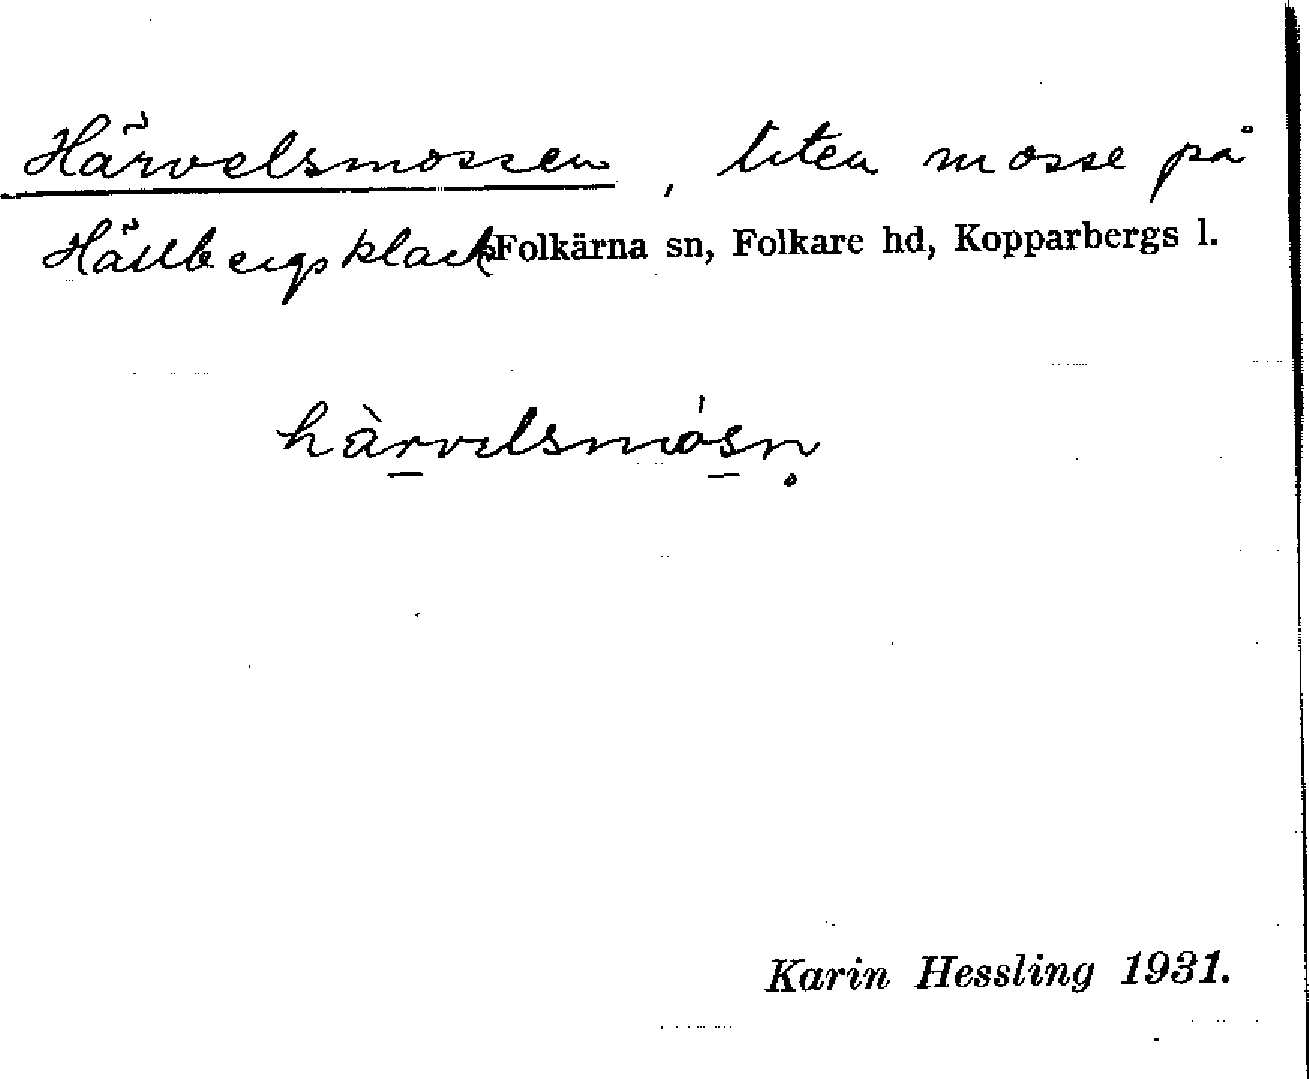 Härvelsmossen, liten mosse på
Hällbergsklack Folkärna sn, Folkare hd, Kopparbergs l.
hàrvelsmósn̥
Karin Hessling 1931.